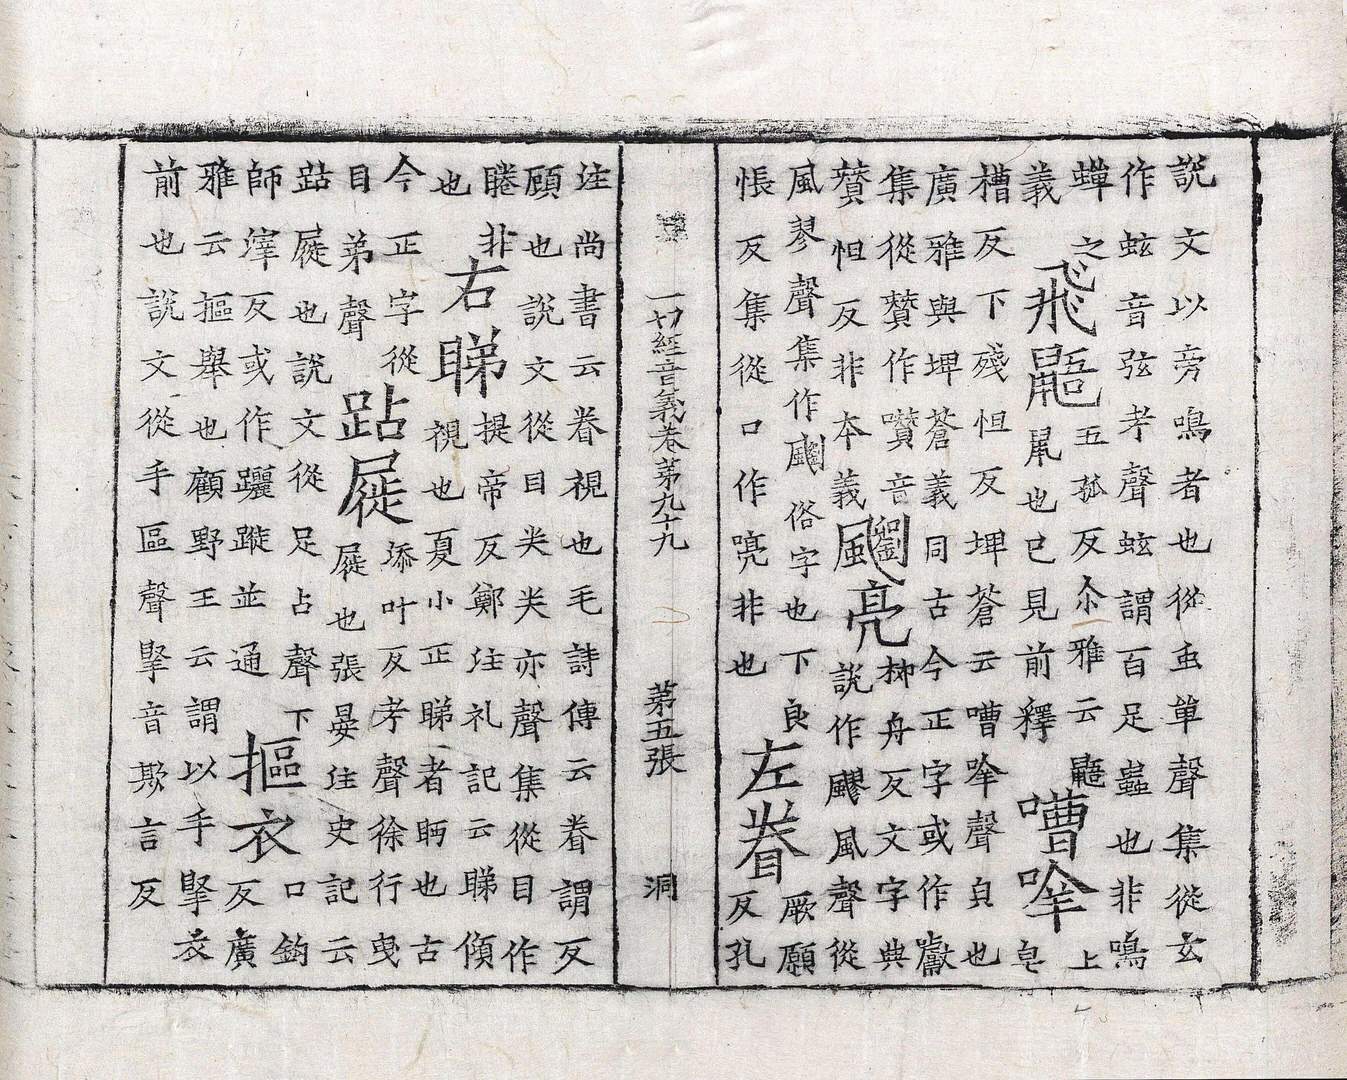 說文以旁鳴者也從虫單聲集從玄
作蚿音弦孝聲蚿謂百足蟲也非鳴
蟬之義飛鼯五孤反尒雅云鼯鼠也已見前釋嘈㖕上皂
槽反下殘怛反埤蒼云嘈㖕聲皃也
廣雅與埤蒼義同古今正字或作囐
集從贊作囋音贊怛反非本義飀亮柳舟反文字典說作飂風聲從
風翏聲集作飀俗字也下良悵反集從口作喨非也左眷厥願反孔
一切經音義卷苐九十九 苐五張 洞
注尚書云眷視也毛詩傳云眷謂反
顧也說文從目关关亦聲集從目作
睠非也右睇提帝反鄭注礼記云睇傾視也夏小正睇者眄也古
今正字從目弟聲跕屣添叶反孝聲徐行曳屣也張晏注史記云
跕屣也說文從足占聲下師滓反或作躧蹝並通摳衣口鉤反廣
雅云摳舉也顧野王云謂以手掔衣
前也說文從手區聲掔音欺言反